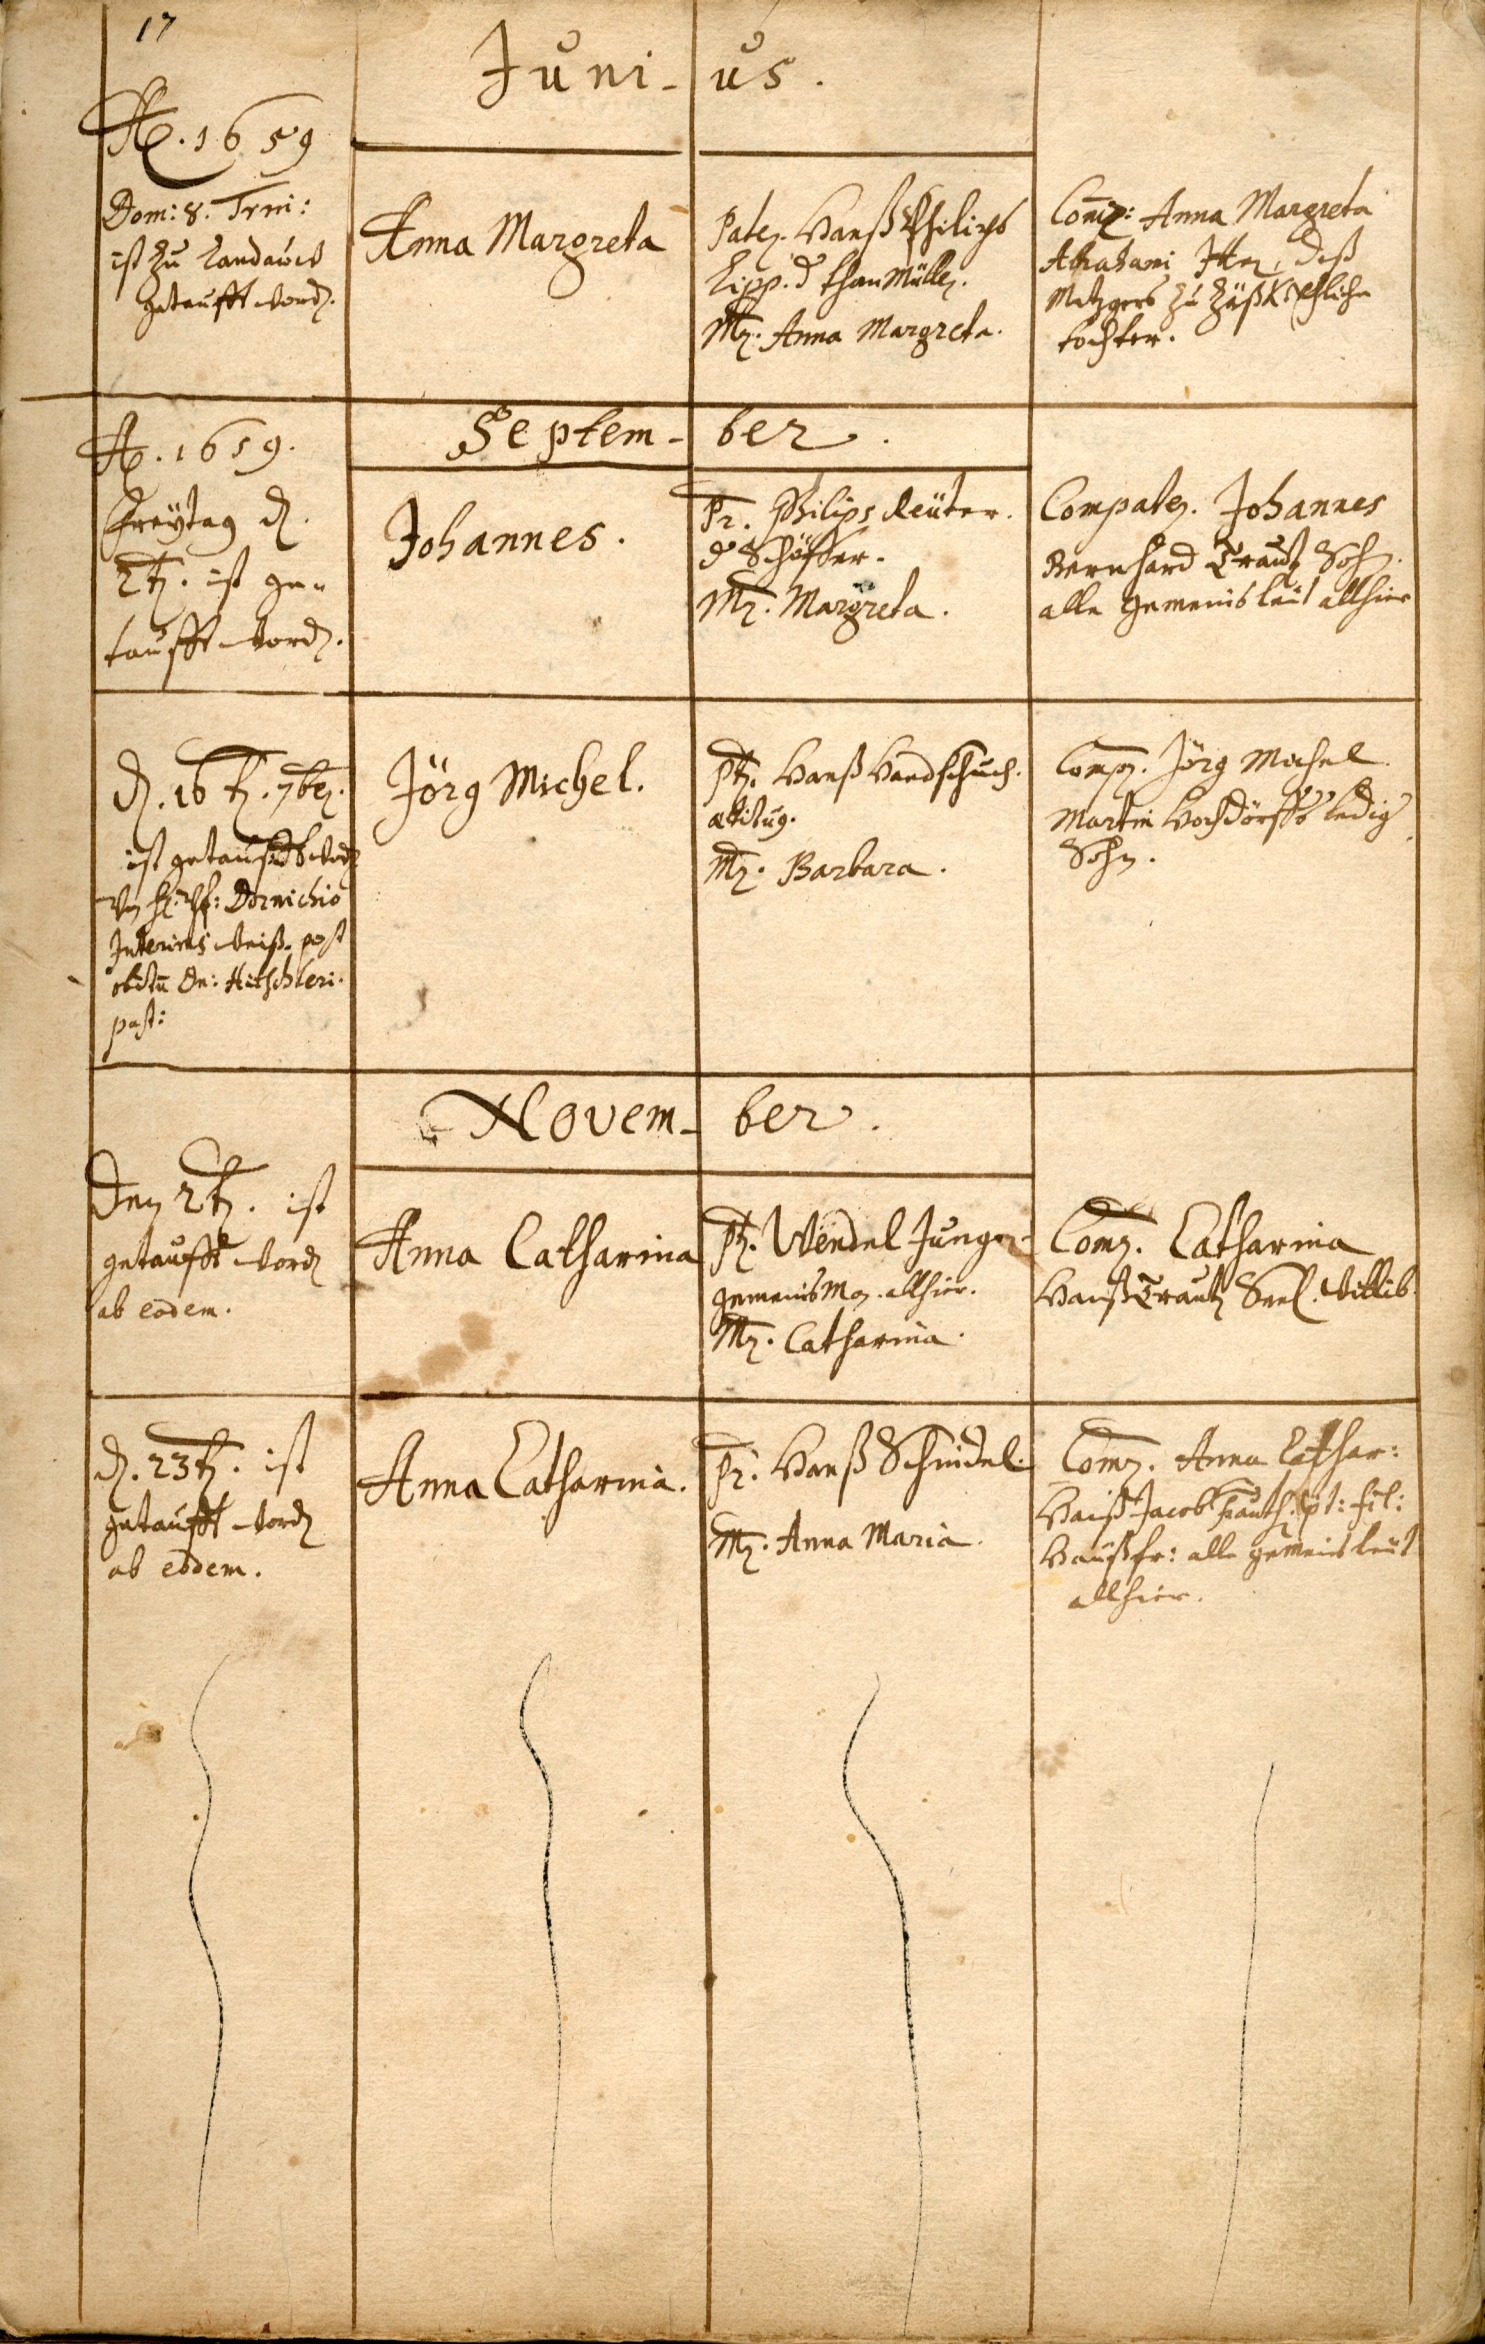 17
Juni- us.
A. 1659
Dom: 8. Trni:
ist zu Landaw
getaufft word.
Anna Margreta
Pater. Hanß Philips
Lipp. d Müller.
Mr. Anna Margreta.
Comp: Anna Margreta
Abrahami deß
Metzgers zu Ehliche
tochter.
Septem- ber.
A. 1659.
Freÿtag d.
2t. ist ge-
taufft word.
Johannes.
Pr. Philips Reüter.
d Schäffer.
Mr. Margreta.
Compater. Johannes
Bernhard Trautz Sohn.
alle gemeinsleüt allhier
d. 16t. 7ber.
ist getaufft word
von H. Pf: Dornichio
Interims weiß. post
obitu Dn: Hitschleri.
past:
Jörg Michel.
Pr. Hanß Handschuch.
Mr. Barbara.
Comp. Jörg Michel.
Martin Hochdörffers ledig
Sohn.
Novem- ber.
Den 2t. ist
getaufft word
ab eodem.
Anna Catharina
Pr. Wendel Junger
gemeinsMan allhier.
Mr. Catharina.
Com. Catharina
Hanß Trautz Seel. Wittib.
d. 23t. ist
getaufft word
ab eodem.
Anna Catharina.
Pr. Hanß Schindel.
Mr. Anna Maria.
Com. Anna Cathar:
Hanß Jacob fil:
Haußfr: alle gemeinsleüt
allhier.